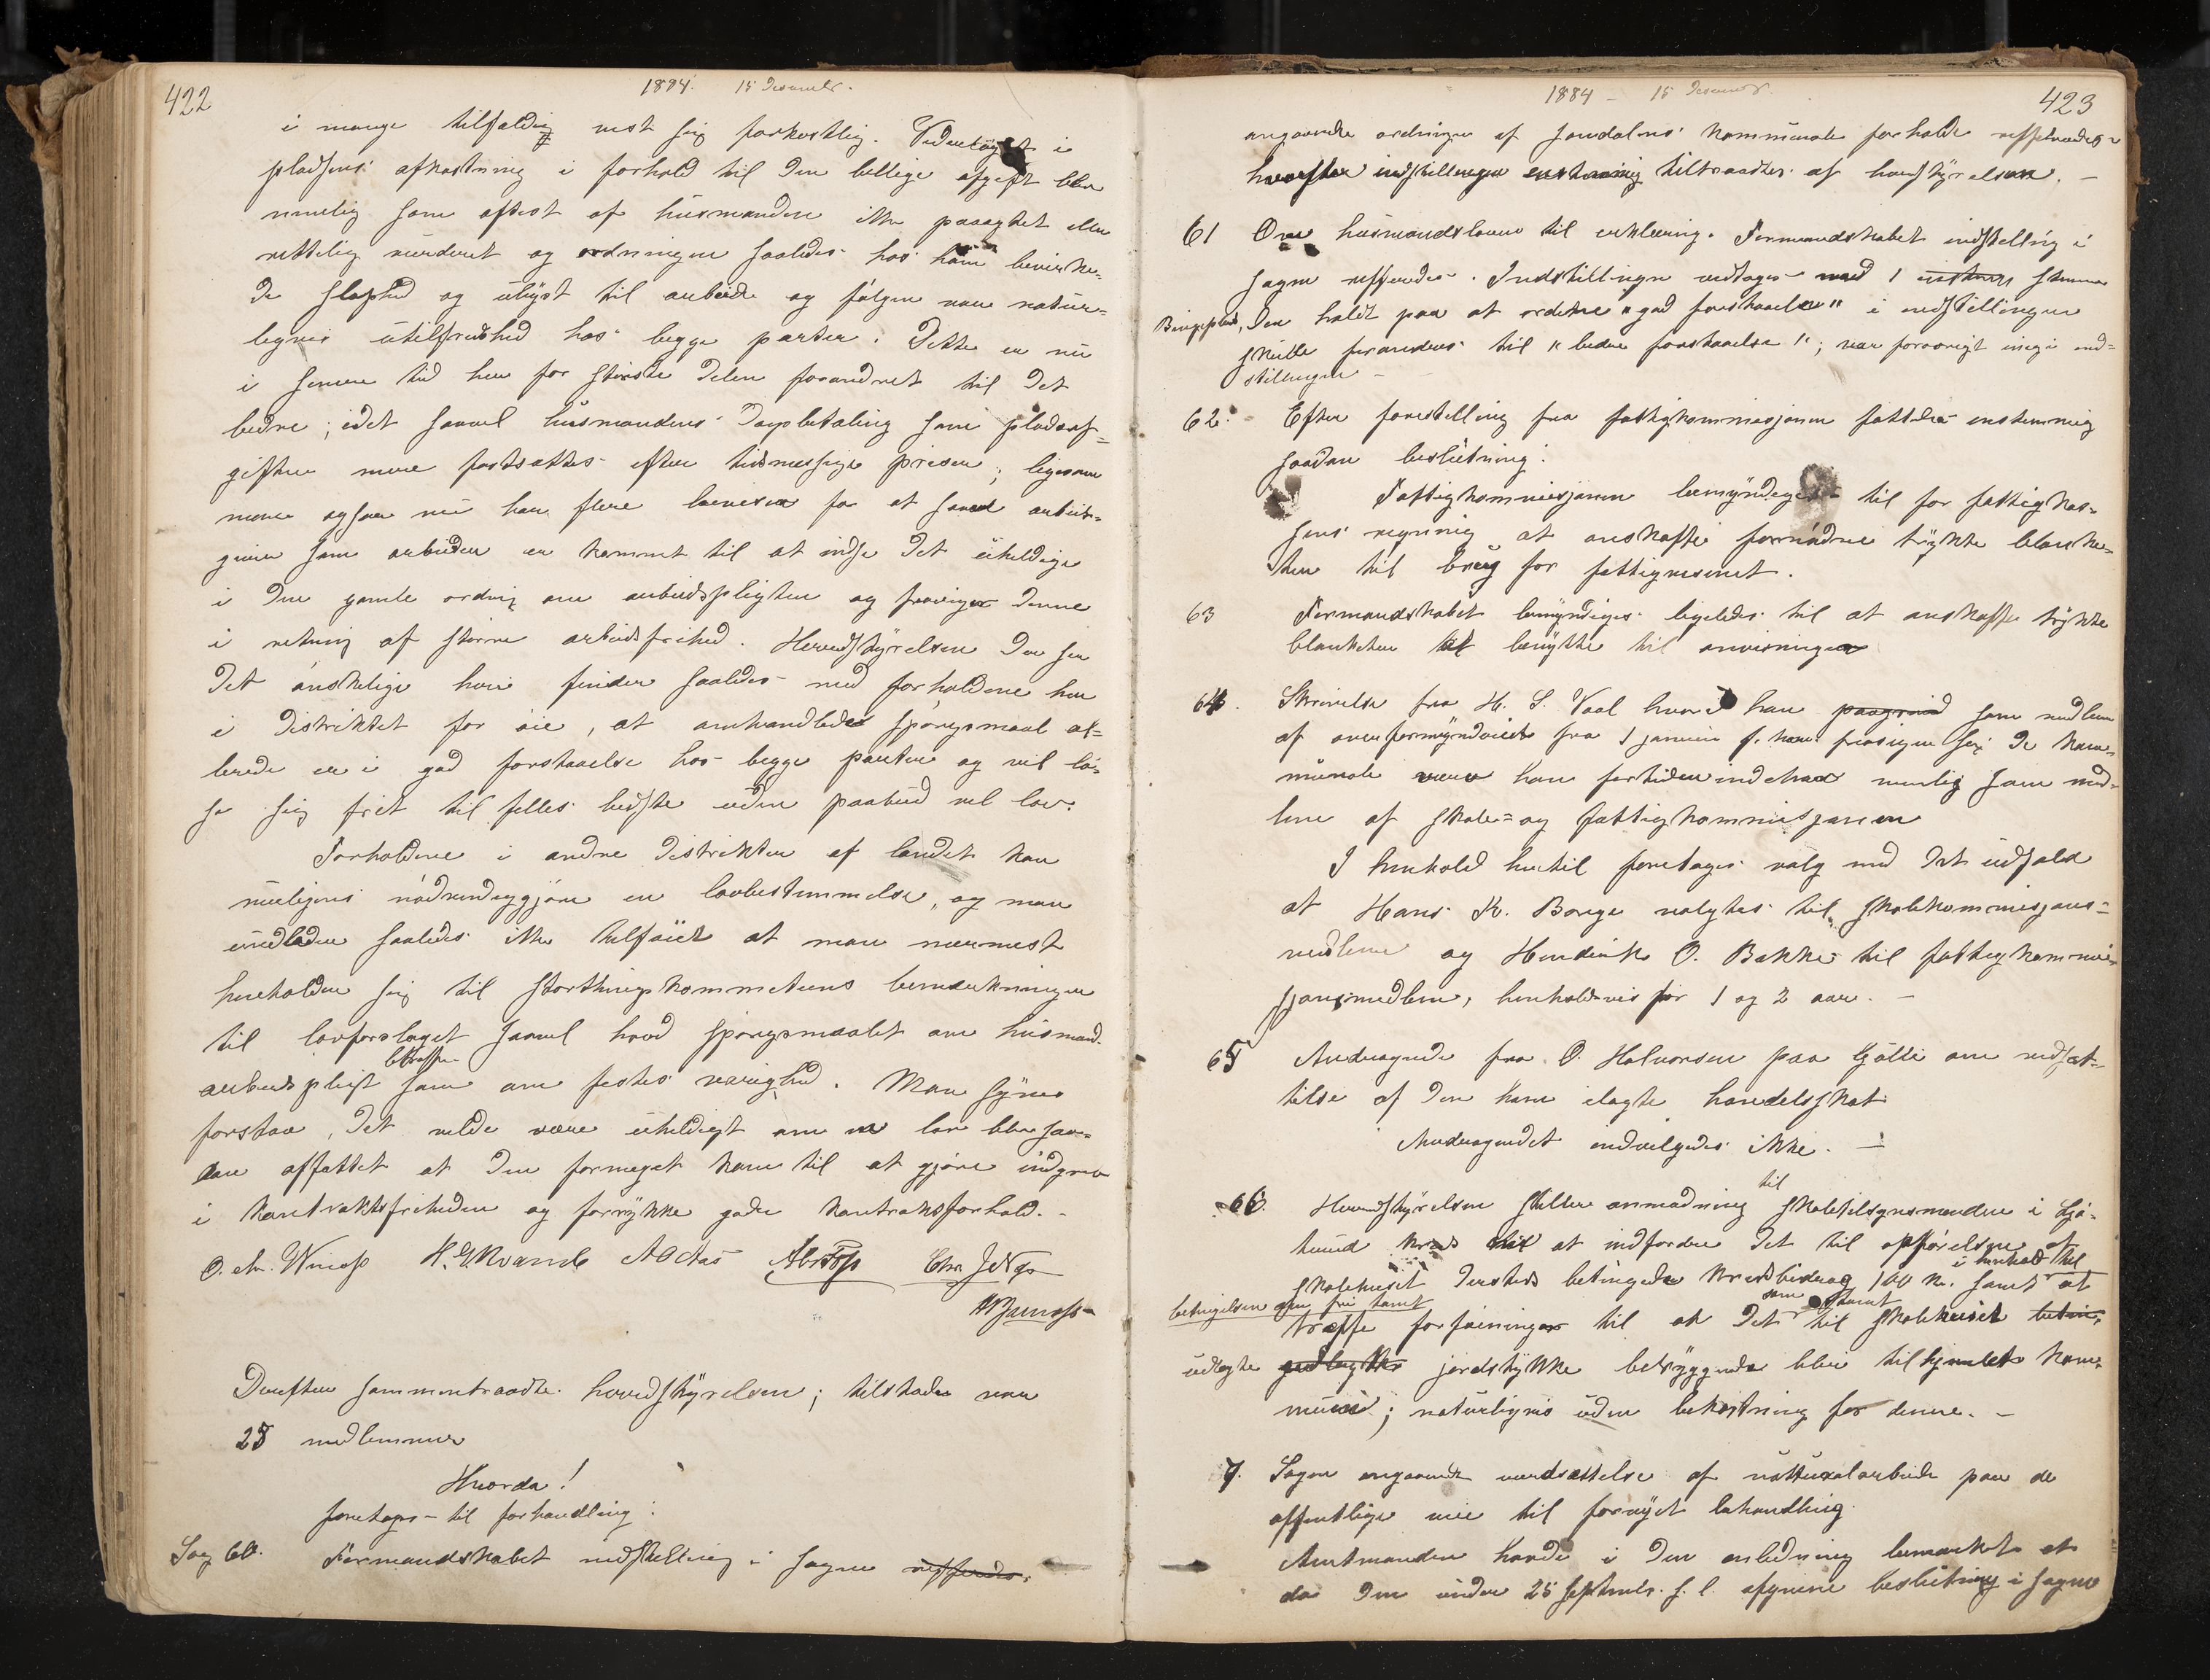 422
1884. 15 Desember.
i mange tilfælde vist sig forkastelig. Vederlaget i
pladsens afkastning i forhold til den billige afgift blev
nemlig som oftest af husmanden ikke paaagtet eller
rettelig vurderet og ordningen saaledes hos ham bevirke-
de slaphed og ulyst til arbeide og følgen var natur-
ligvis utilfredshed hos begge parter. Dette er nu
i senere tid her for største delen forandret til det
bedre; idet saavel husmandens dagbetaling som pladsaf-
giften mere fastsættes efter tidsmessige priser; ligesom
man ogsaa nu har flere beviser for at saavel arbeids-
giver som arbeider er kommet til at indse det uheldige
i den gamle ordning om arbeidspligten og fraviger denne
i retning af større arbeidsfrihed. Herredstyrelsen der ser
det ønskelige heri finder saaledes med forholdene her
i distriktet for øie, at omhandlede spørgsmaal al-
lerede er i god forstaaelse hos begge parter og vil lø-
se sig frit til felles bedste uden paabud ved lov.
Forholdene i andre distrikter af landet kan
muligens nødvendiggjøre en lovbestemmelse, og man
undlader saaledes ikke tilføiet at man nærmest
henholder sig til storthingskommiteens bemærkninger
til lovforslaget saavel hvad spørgsmaalet om husmands-
arbeidspligt betræffer som om festes varighed. Man synes
forstaa, det vilde være uheldigt om en lov blev saa-
dan affattet at den formeget kom til at gjøre indgreb
i kontraktsfriheden og forrykke gode kontraktsforhold. -
Derefter sammentraadte herredstyrelsen; tilstede var
25 medlemmer
Hvorda!
foretages til forhandling:
Sag 60. Formandskabet indstilling i sagen refferedes,
1884 - 15 Desember.
423
angaaende ordningen af Sandalens kommunale forholde refferedes -
hvorefter indstillingen enstemmig tiltraadtes af herredstyrelsen. -
61 Om husmandsloven til erklæring. Formandskabet indstilling i
sagen refferedes. Indstillingen vedtoges med 1 stemme
den holdt paa at ordene "god forstaaelse" i indstillingen
skulle forandres til "bedre forstaaelse"; var forøvrigt enig i ind-
stillingen -
62. Efter forestilling fra fattigkommisjonen fattedes enstemmig
saadan beslutning:
Fattigkommisjonen bemyndiges til for fattigkas-
sens regning at anskaffe fornødne trykte blanke-
ter til brug for fattigvesenet.
63 Formandskabet bemyndiges ligeledes til at anskaffe trykte
blanketter til benytte til anvisninger
64. Skrivelse fra H. S. Vaal hvori han som medlem
af overformynderiet fra 1 januar f. kom. frasiger sig de kom-
munale verv han fortiden indehar nemlig som med-
lem af skole- og fattigkommisjonen
I henhold hertil foretoges valg med det udfald
at Hans K. Borge valgtes til skolekommisjons-
medlem og Hendrik O. Bakke til fattigkommi-
sjonsmedlem, henholdsvis for 1 og 2 aar. -
65 Andragende fra O. Halvorsen paa om nedsæt-
telse af den ham ilagte handelsskat
Andragendet indvilgedes ikke. -
66. Herredstyrelsen stiller anmodning til skoletilsynsmanden i
kreds til at indfordre det til opførelsen af
skolehuset dersteds betingede kredsbidrag 100 kr. samt i henhold til
betingelsen om fri tomt at
træffe forføininger til at det som tomt til skolehuset
udlagte jordstykke betryggende blir tilhjemlet kom-
munen; naturligvis uden bekostning for denne. -
7. Sagen angaaende verdsættelse af naturalarbeide paa de
offentlige veie til fornyet behandling.
Amtmanden havde i den anledning bemærket at
da den under 25 septembr. s. l. afgivne beslutning i sagen